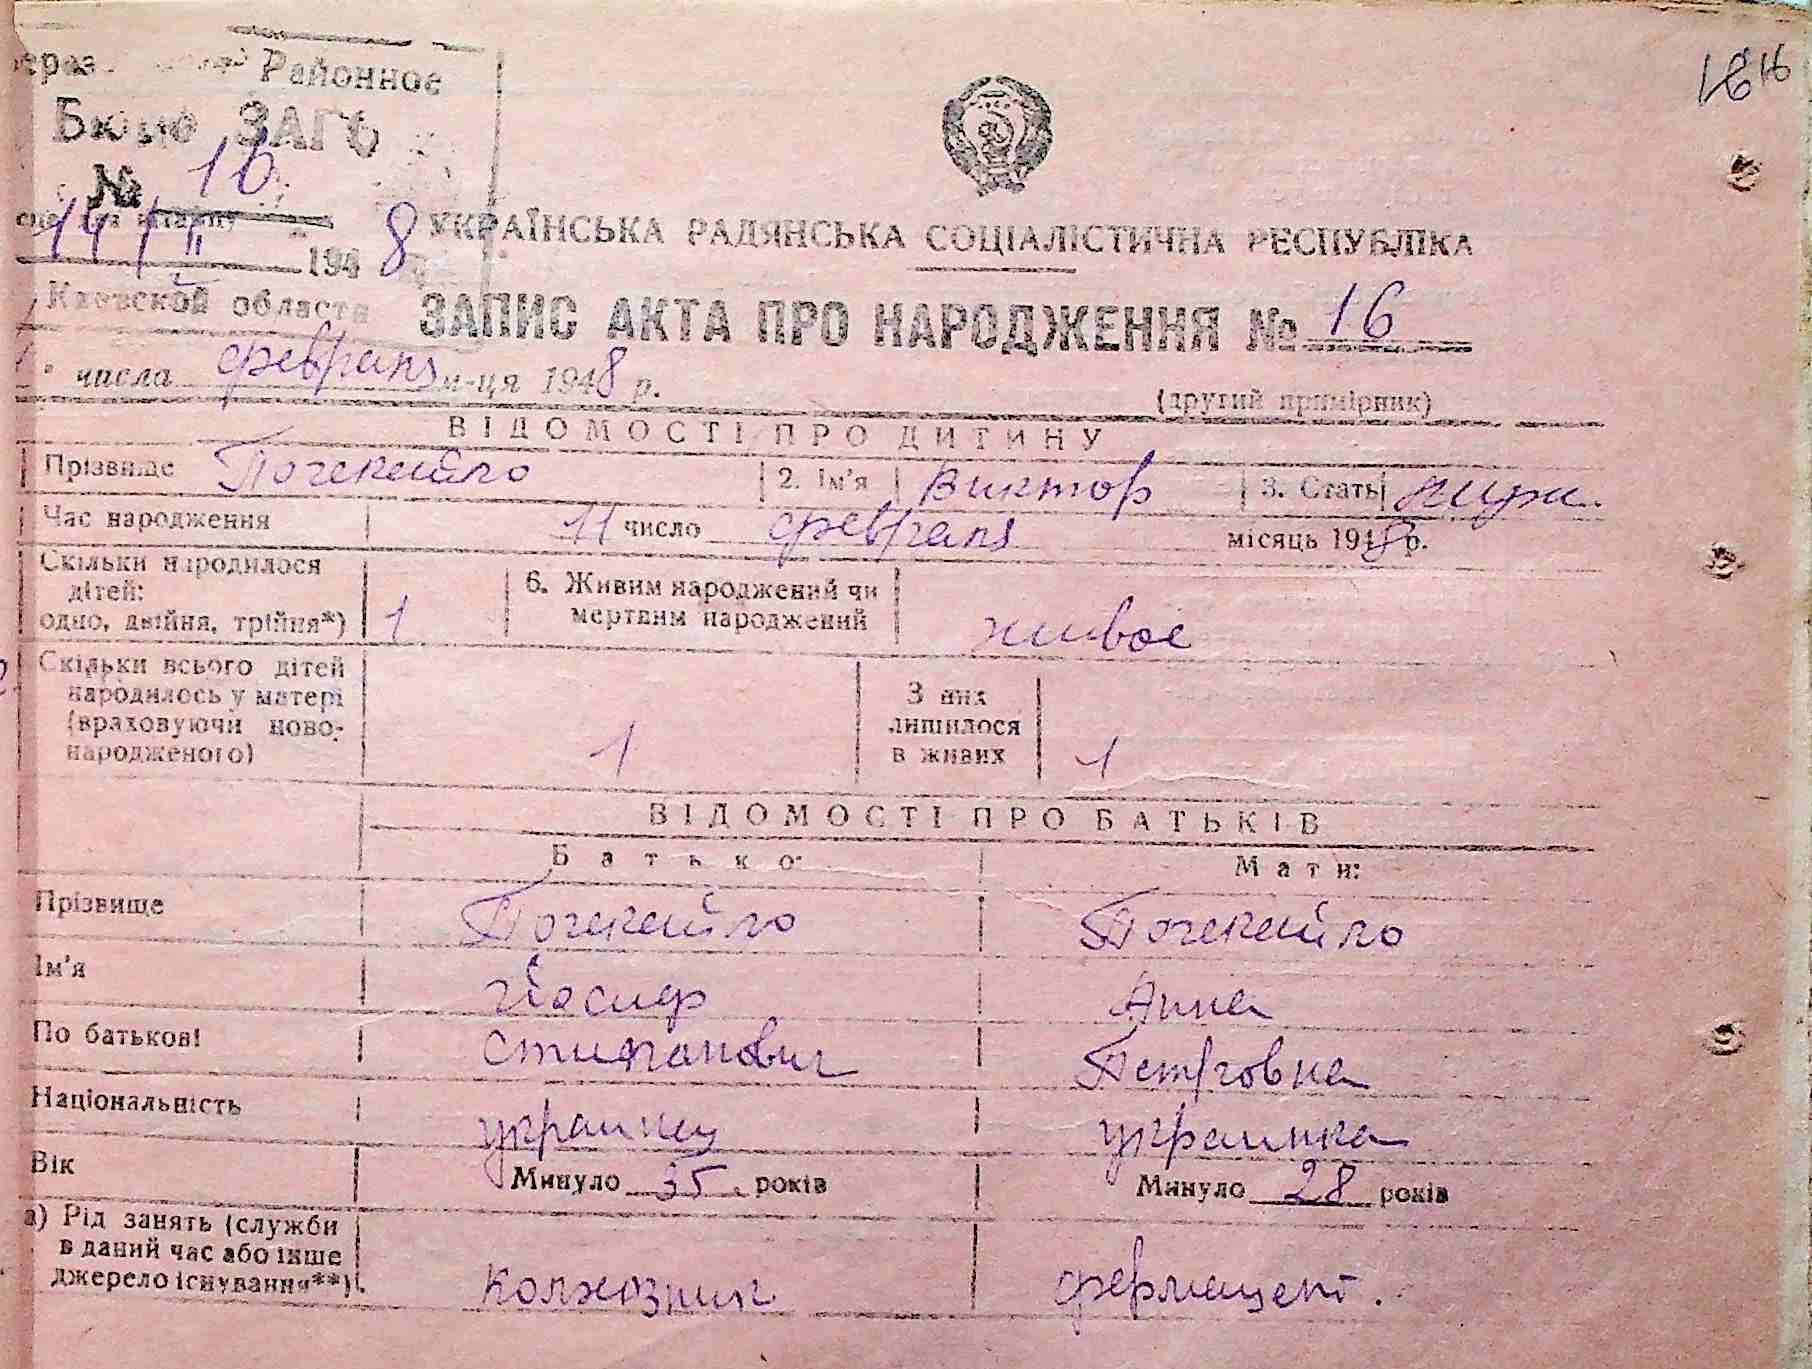 Районное
Бюро ЗАГС
№ 16
14/II 1948
Киевской области
16 16
УКРАЇНСЬКА РАДЯНСЬКА СОЦІАЛІСТИЧНА РЕСПУБЛІКА
ЗАПИС АКТА ПРО НАРОДЖЕННЯ № 16
числа февраля м-ця 1948 р.
(другий примірник)
ВІДОМОСТІ ПРО ДИТИНУ
Прізвище Почекайло 2. Ім'я Виктор 3. Стать муж.
Час народження 11 число февраля місяць 1948 р.
Скільки народилося
дітей:
одно, двійня, трійня*) 1
6. Живим народжений чи
мертвим народжений живое
Скільки всього дітей
народилось у матері
(враховуючи ново-
народженого) 1
З них
лишилося
в живих 1
ВІДОМОСТІ ПРО БАТЬКІВ
Батько: Мати:
Прізвище Почекайло Почекайло
Ім'я Йосиф Анна
По батькові Стипанович Петровна
Національність украинец украинка
Вік Минуло 35 років Минуло 28 років
а) Рід занять (служби
в даний час або інше
джерело існування**) колхозник фермацент.